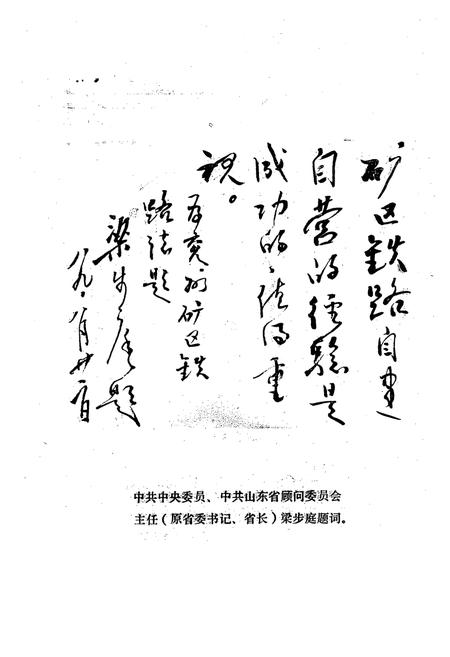 矿区铁路自建
自营的经验是
成功的、值得重
视。
为兖州矿区铁
路志题
梁步庭题
八九、八月廿二日
中共中央委员、中共山东省顾问委员会
主任（原省委书记、省长）梁步庭题词。